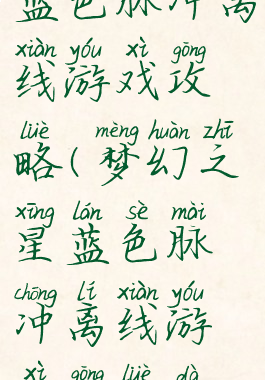 蓝色脉冲离
xiàn yóu xì gōng
线游戏攻
lüè mèng huàn zhī
略(梦幻之
xīng lán sè mài
星蓝色脉
chōng lí xiàn yóu
冲离线游
xì gōng lüè dà